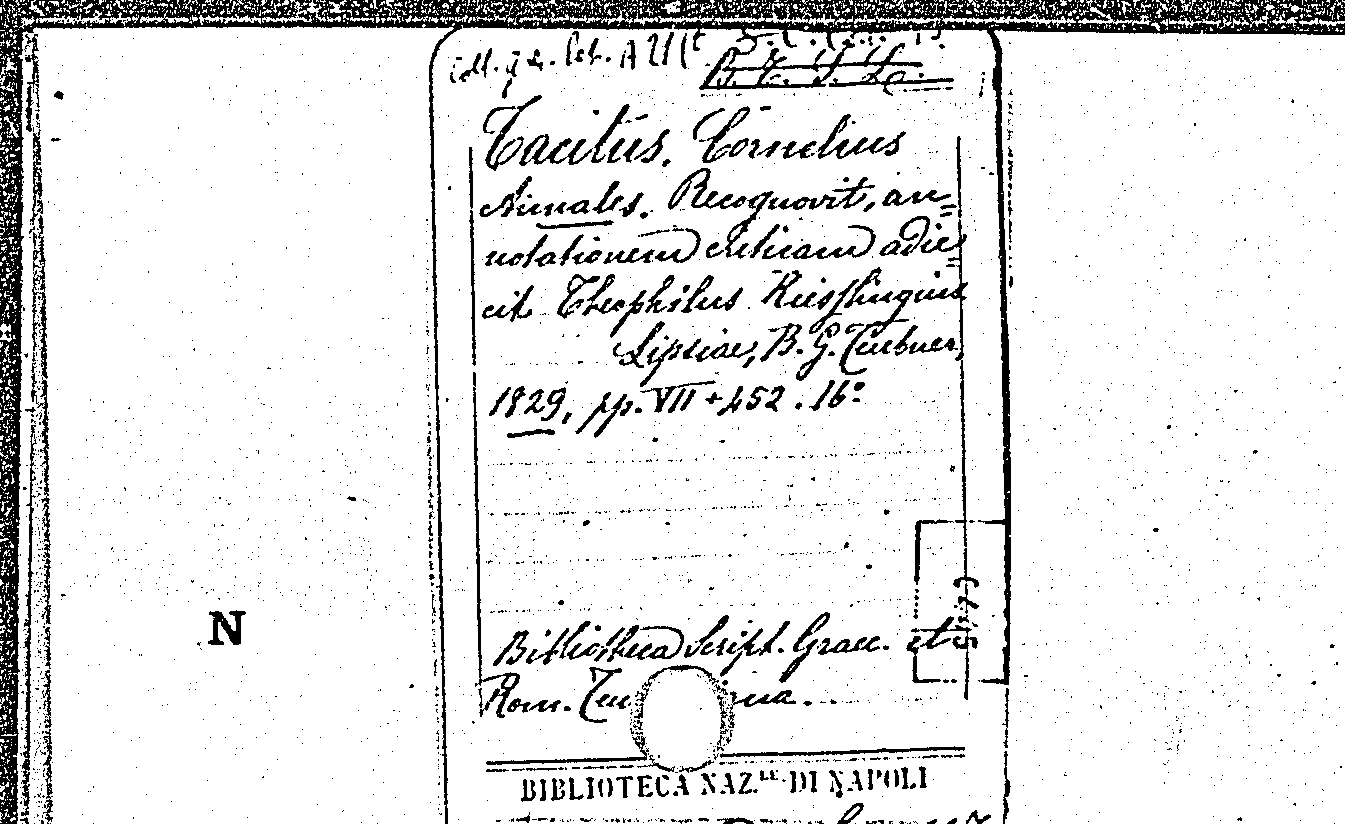 Tacitus, Cornelius
Annales. Recognovit, an=
notationem criticam adie=
cit Theophilus Kiesslingius
Lipsiae, B. G. Teubner,
1829, pp. VII + 452. 16°
N
Bibliotheca Script. Graec. et
Rom. Teu na..
BIBLIOTECA NAZ.LE DI NAPOLI